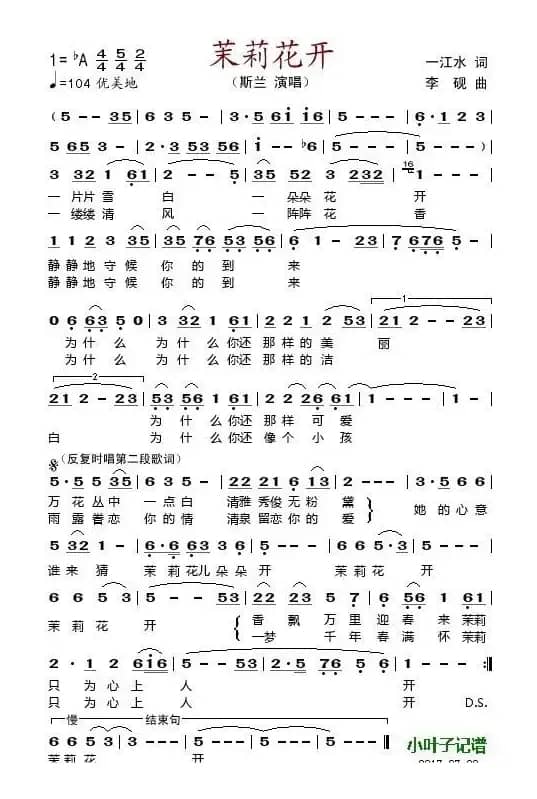 茉莉花开
1=♭A 4/4 5/4 2/4
♩=104 优美地
（斯兰 演唱）
一江水 词
李 砚 曲
( 5 - - 35 | 6 3 5 - | 3·5 61 i·61 | 5 - - - | 6· 1 2 3 |
5 65 3 - | 2· 3 53 56 | i - - ♭6 | 5 - - - | 5 - - - )
3 32 1 61 | 2 - - 5 | 35 52 3 232 | 1 - - -
一 片片 雪 白 一 朵朵 花 开
一 缕缕 清 风 一 阵阵 花 香
1 1 2 3 35 | 35 76 53 56 | 6 1 - 23 | 7 676 5 -
静 静 地 守 候 你 的 到 来
静 静 地 守 候 你 的 到 来
0 6 63 5 0 | 3 32 1 61 | 2 2 1 2 53 | 21 2 - - 23 |
为 什 么 为 什 么 你还 那 样 的 美 丽
为 什 么 为 什 么 你还 那 样 的 洁
21 2 - - 23 | 53 53 2 1 61 | 2 2 6 61 | 1 - - - | 1 - - -
白 为 什 么 你还 那 样 可 爱
为 什 么 你还 像 个 小 孩
(反复时唱第二段歌词)
5· 5 5 35 | 6 5 3 5 - | 22 21 6 13 | 5 - - - | 6 6 5 63
万 花 丛 中 一 点 白 清雅 秀俊 无 粉 黛 她 的 心 意
雨 露 眷 恋 你 的 情 清泉 留恋 你 的 爱
5 32 1 - | 6· 6 6 63 | 5 - - 9 | 5 - - - | 6 6 5· 3 | 5 - - -
谁 来 猜 茉 莉 花儿 朵 朵 开 茉 莉 花 开
6 6 5 3 | 5 - - 2 | 5 - - - | 22 23 5 7 | 6 56 61
茉 莉 花 开 香 飘 万 里 迎 春 来 茉莉
一 梦 千 年 春 满 怀 茉莉
2 · 1 2 6i6 | 5 - - - | 5 - - 3 | 2· 5 76 6 | 5 - - - :‖
只 为 心 上 人 开
只 为 心 上 人 开 D.S.
慢 结束句
6 6 5 3 | 3 - - 2 3 | 5 - - - | 5 - - - | 5 - - - ‖
茉 莉 花 开
小叶子记谱